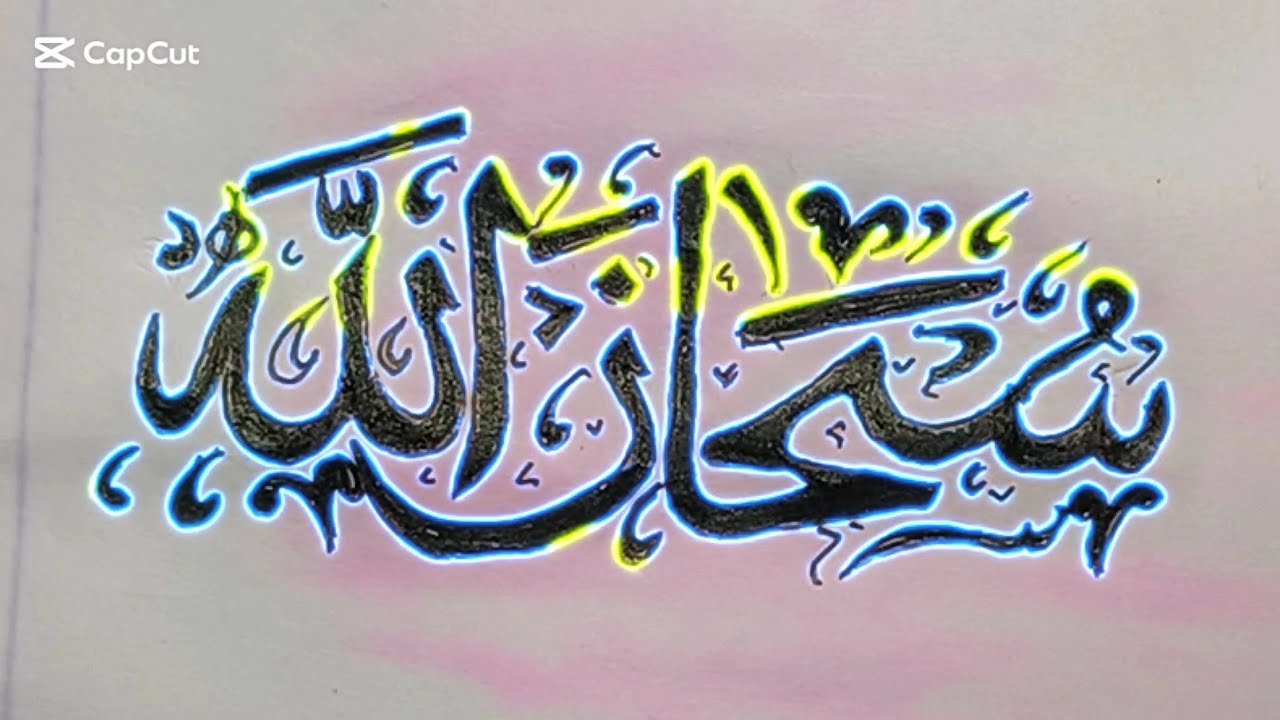 CapCut
سُبْحَانَ اللّٰه